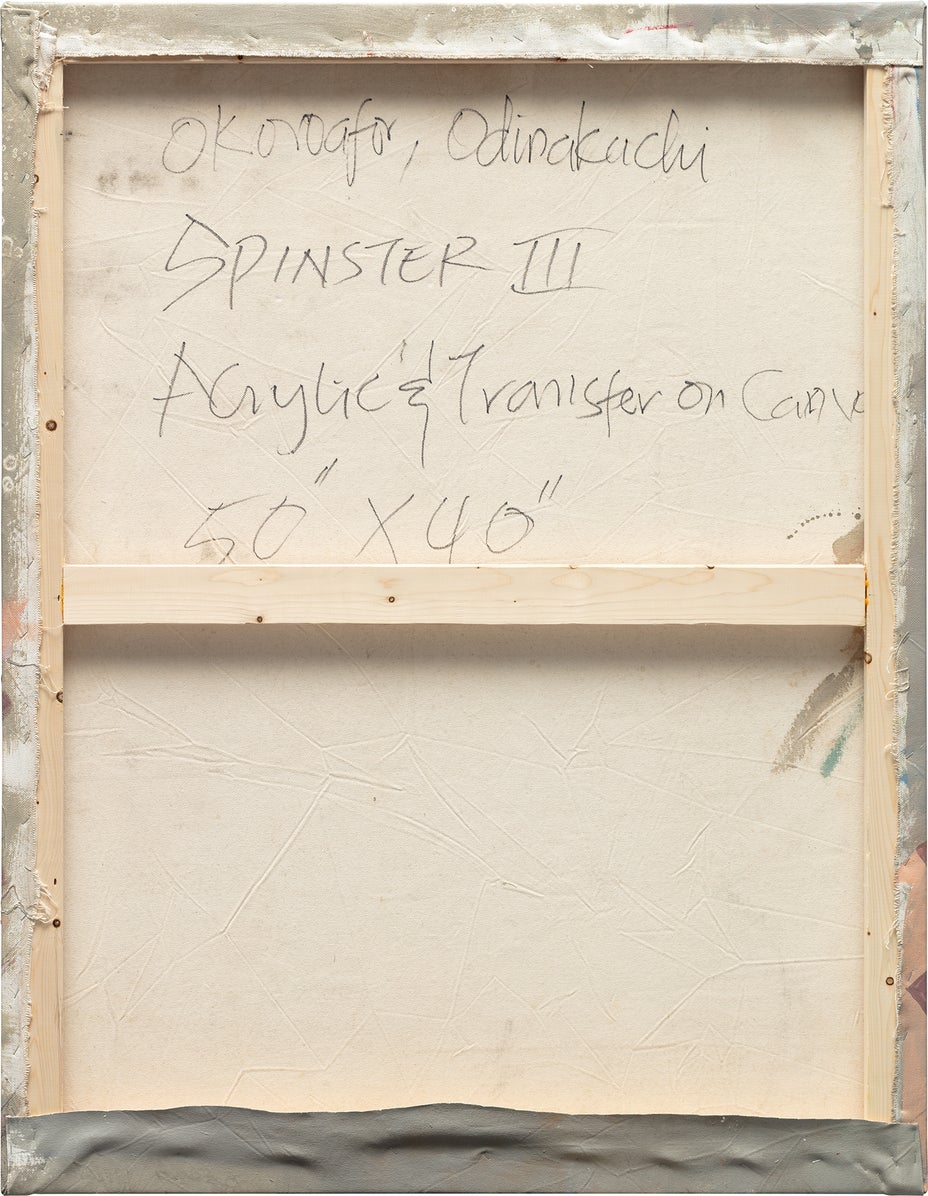 Okoroafor, Odinakachi
SPINSTER III
Acrylic & Transfer on Canva
50" X 40"